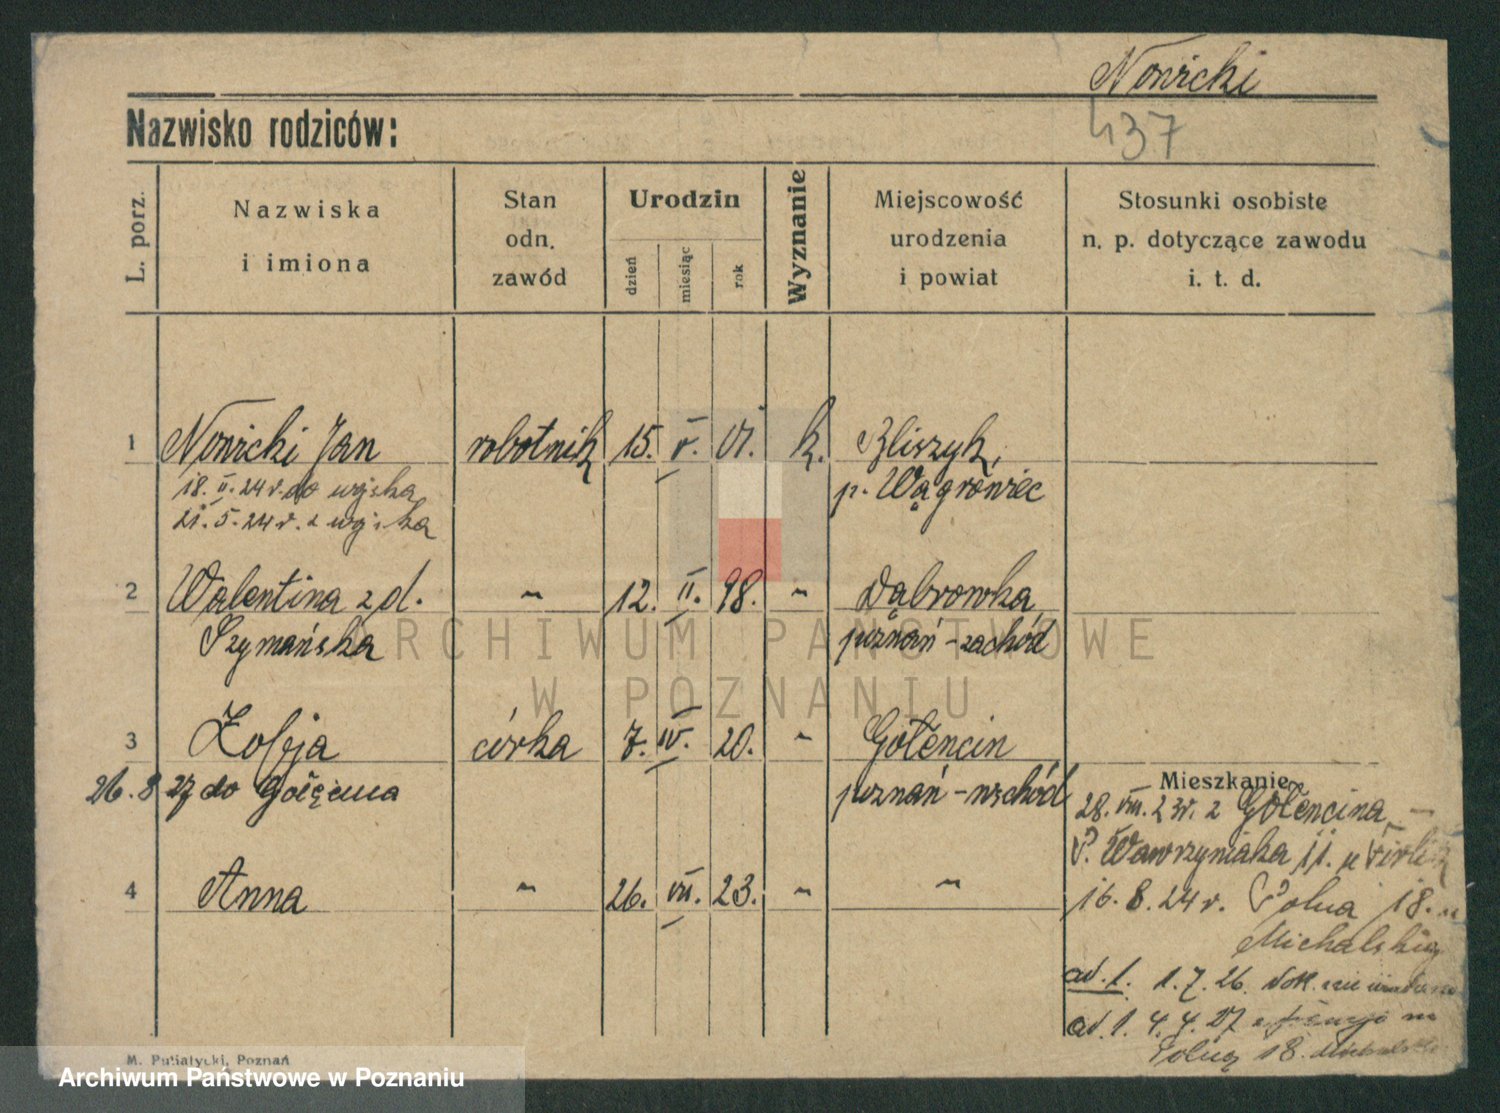 Nowicki
437
Nazwisko rodziców:
L. porz.
Nazwiska
i imiona
Stan
odn.
zawód
Urodzin
dzień
miesiąc
rok
Wyznanie
Miejscowość
urodzenia
i powiat
Stosunki osobiste
n. p. dotyczące zawodu
i. t. d.
1 Nowicki Jan robotnik 15. V. 01. k.
p. Wągrowiec
18. II. 24 r. do wojska
21. 5. 24 r. z wojska
2 Walentina z d. " 12. II. 98. " Dąbrowka
Szymańska poznań - zachód
3 Zofja córka 7. IV. 20. " Gołencin
26. 8 27 do Golęcina poznań - wschód
4 Anna " 26. VII. 23. " "
Mieszkanie
28. VIII. 23r. z Gołencina
P. Wawrzyniaka 11. u
16. 8. 24 r. Polna 18. u
ad. 1. 1. 7. 26. dok. nie
ad. 1. 4. 4. 27 z
Polną 18.
M. Putiatycki, Poznań
ARCHIWUM PAŃSTWOWE
W POZNANIU
Archiwum Państwowe w Poznaniu